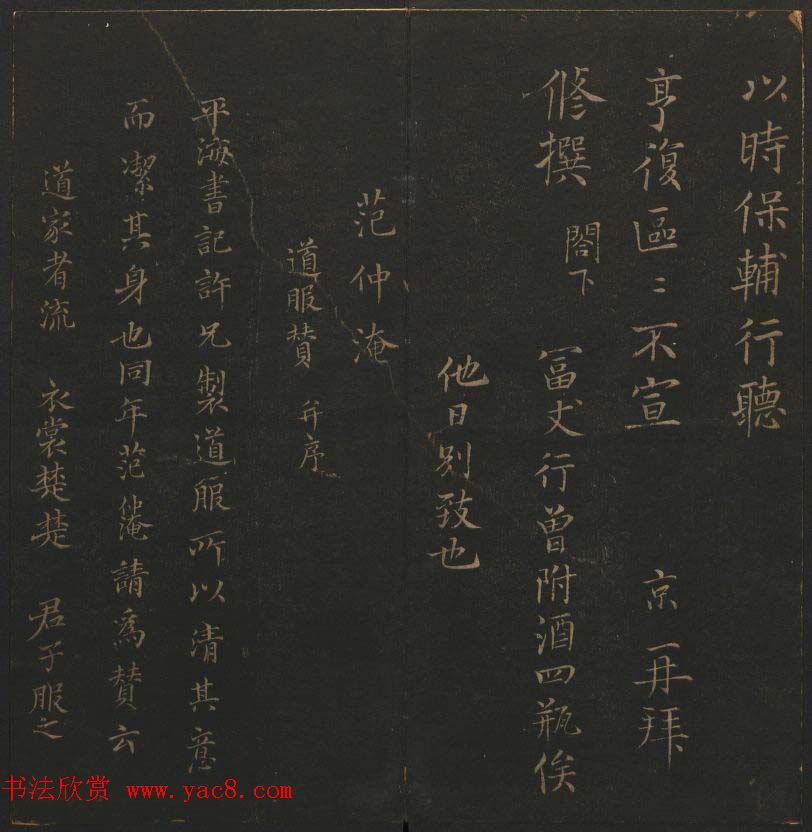 以時保輔行聽
亨復區〻不宣 京再拜
修撰 閤下 冨丈行曾附酒四瓶俟
他日別致也
范仲淹
道服贊 并序
平海書記許兄製道服所以清其意
而潔其身也同年范仲淹請爲贊云
道家者流 衣裳楚楚 君子服之
书法欣赏 www.yac8.com